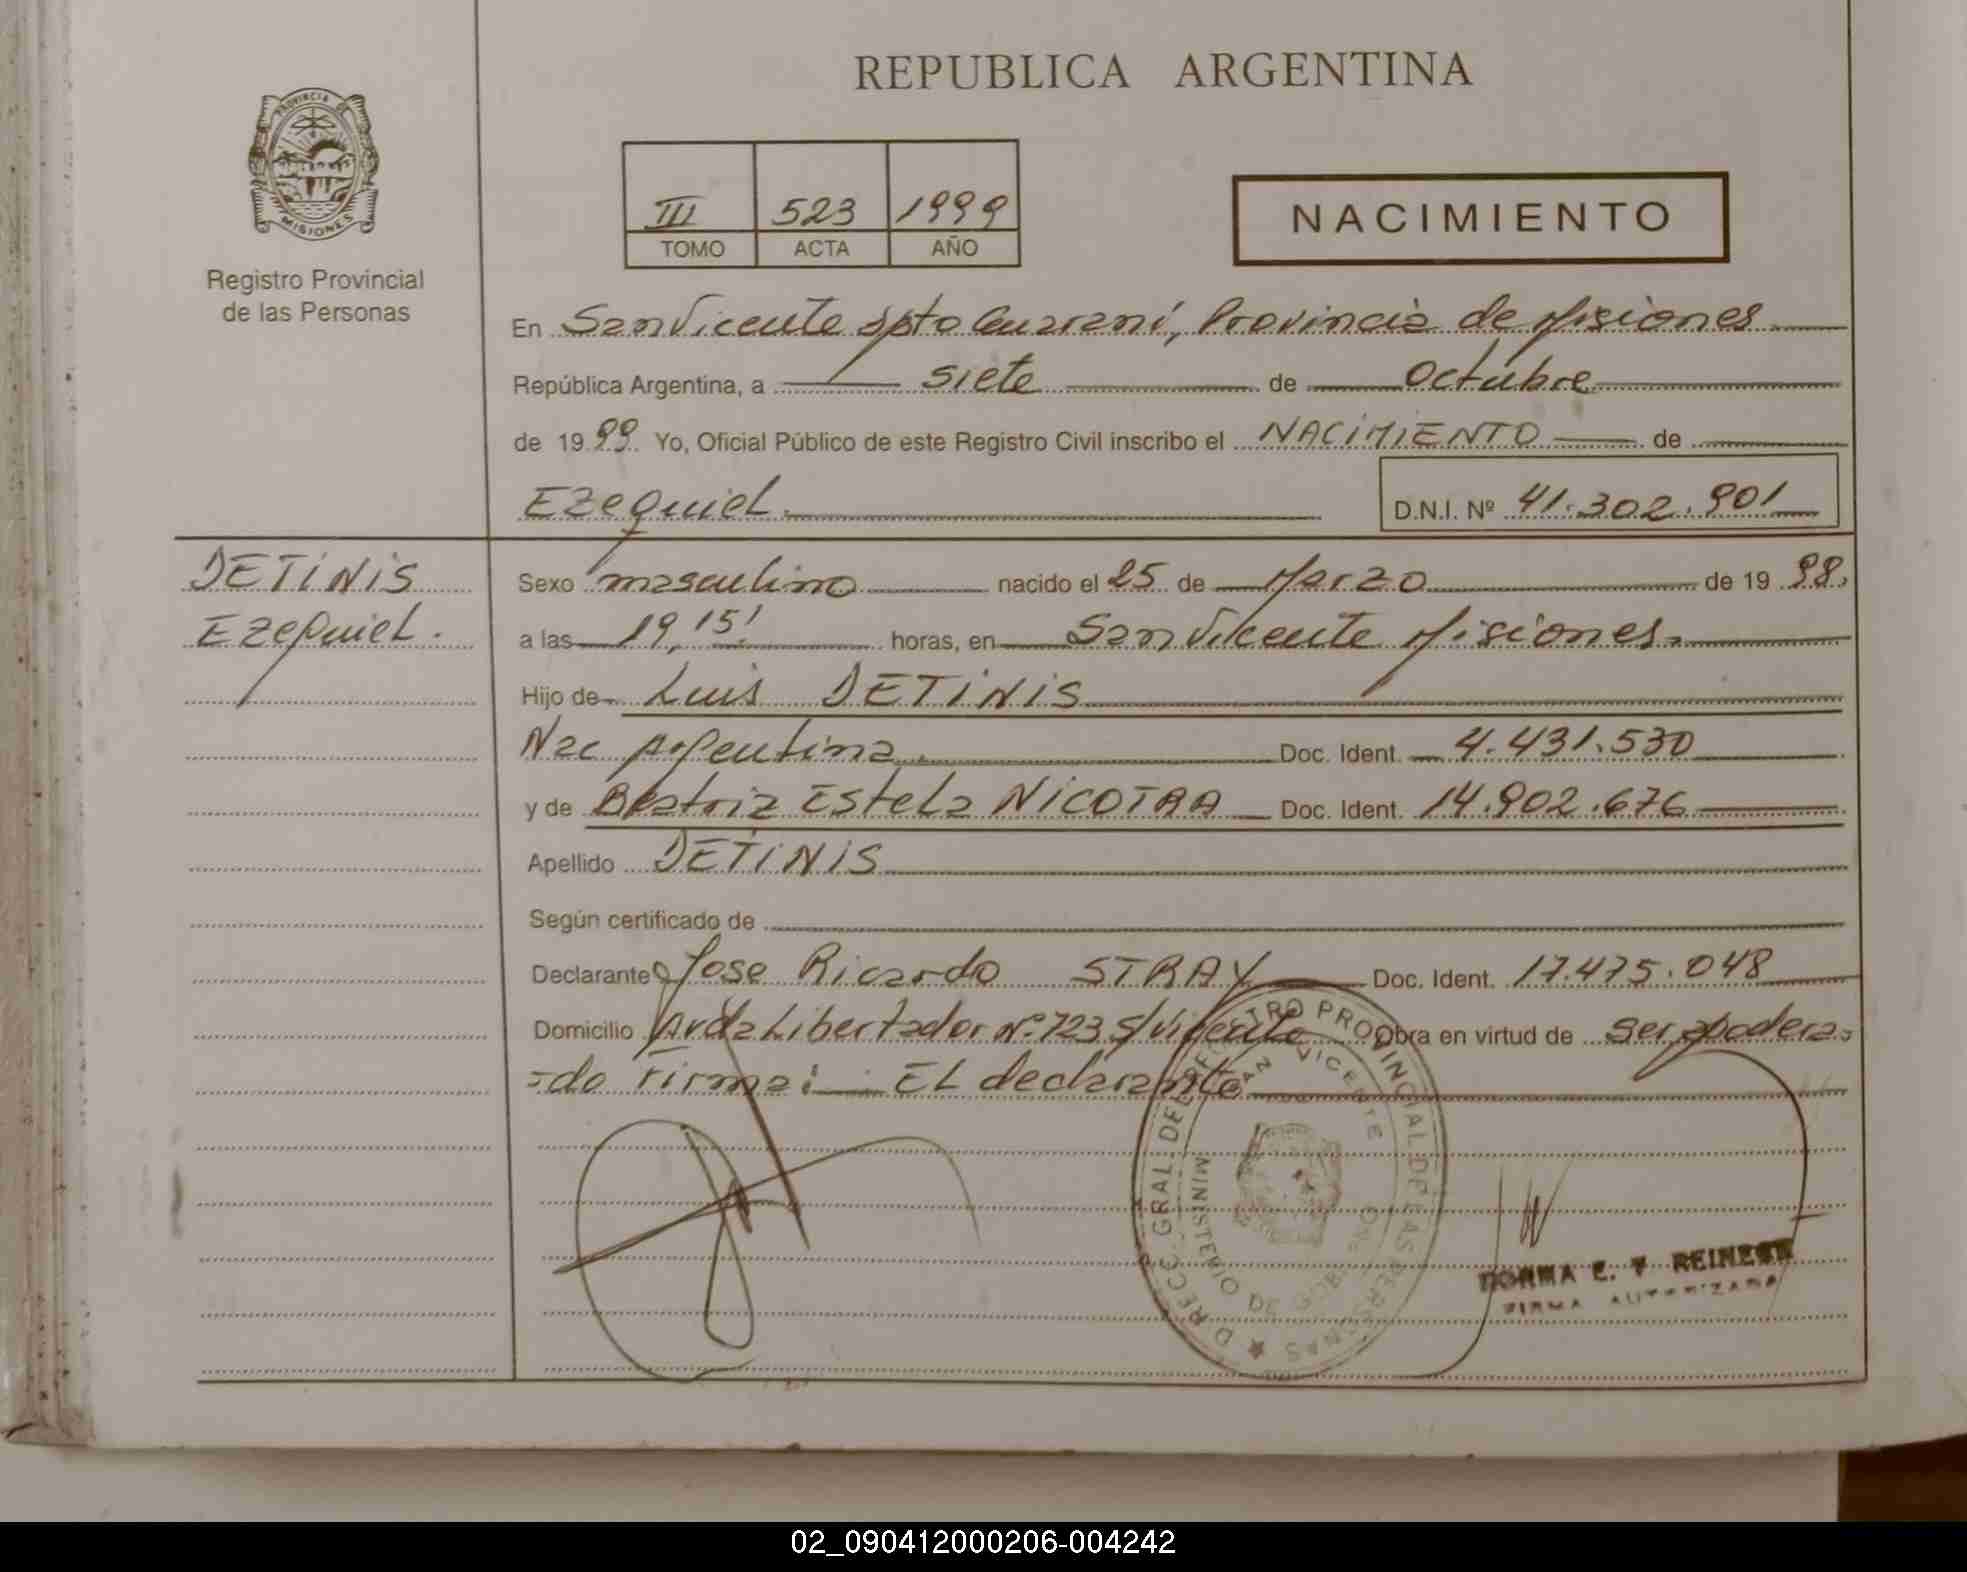 REPUBLICA ARGENTINA
PROVINCIA DE
MISIONES
Registro Provincial
de las Personas
III 523 1999
TOMO ACTA AÑO
NACIMIENTO
En San Vicente Dpto Guarani, Provincia de Misiones
República Argentina, a siete de Octubre
de 1999 Yo, Oficial Público de este Registro Civil inscribo el NACIMIENTO de
Ezequiel.
D.N.I. Nº 41.302.901
DETINIS
Ezequiel.
Sexo masculino nacido el 25 de Marzo de 1998.
a las 19,15' horas, en San Vicente Misiones.
Hijo de Luis DETINIS
Nac Argentina. Doc. Ident. 4.431.530
y de Beatriz Estela NICOTRA Doc. Ident. 14.902.676
Apellido DETINIS
Según certificado de
Declarante Jose Ricardo STRAY Doc. Ident. 17.475.048
Domicilio Avda Libertador Nº 723 S/Vicente Obra en virtud de ser apodera-
-do Firma: El declarante
DIRECC. GRAL. DEL REGISTRO PROVINCIAL DE LAS PERSONAS
SAN VICENTE
MINISTERIO DE GOB.
NORMA E. REINECK
FIRMA AUTORIZADA
02_090412000206-004242